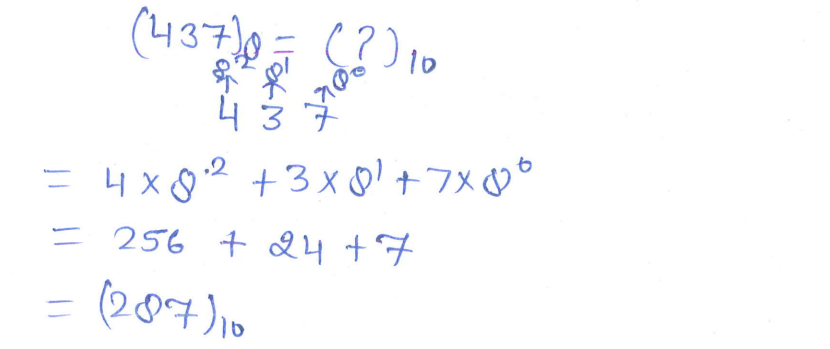 (437)₈ = (?)₁₀
8² 8¹ 8⁰
↑ ↑ ↑
4 3 7
= 4 × 8² + 3 × 8¹ + 7 × 8⁰
= 256 + 24 + 7
= (287)₁₀